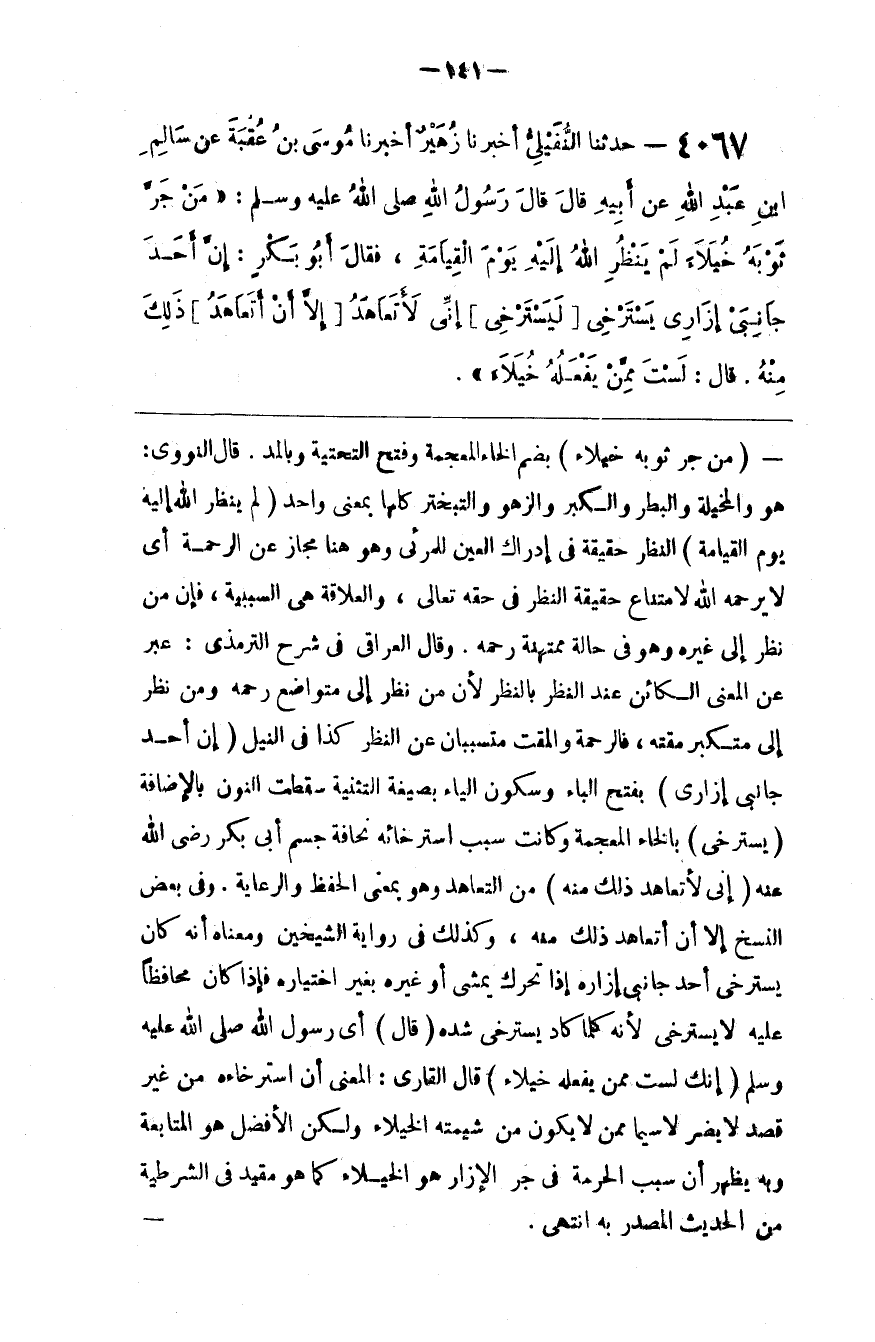 — ١٤١ —
٤٠٦٧ — حدثنا النُّفَيْلِىُّ أخبرنا زُهَيْرٌ أخبرنا مُوسَى بنُ عُقْبَةَ عن سَالِمِ
ابنِ عَبْدِ اللهِ عن أَبِيهِ قالَ قالَ رَسُولُ اللهِ صلى اللهُ عليه وسلم : « مَنْ جَرَّ
ثَوْبَهُ خُيَلَاءَ لَمْ يَنْظُرِ اللهُ إِلَيْهِ يَوْمَ الْقِيَامَةِ ، فقالَ أَبُو بَكْرٍ : إِنَّ أَحَدَ
جَانِبَىْ إِزَارِى يَسْتَرْخِى [ لَيَسْتَرْخِى ] إِنِّى لَأَتَعَاهَدُ [ إِلاَّ أَنْ أَتَعَاهَدَ ] ذَلِكَ
مِنْهُ . قال : لَسْتَ مِمَّنْ يَفْعَلُهُ خُيَلَاءَ » .
— ( من جر ثوبه خيلاء ) بضم الخاء المعجمة وفتح التحتية وبالمد . قال النووى :
هو والمخيلة والبطر والكبر والزهو والتبختر كلها بمعنى واحد ( لم ينظر الله إليه
يوم القيامة ) النظر حقيقة فى إدراك العين للمرئى وهو هنا مجاز عن الرحمة أى
لا يرحمه الله لامتناع حقيقة النظر فى حقه تعالى ، والعلاقة هى السببية ، فإن من
نظر إلى غيره وهو فى حالة ممتهنة رحمه . وقال العراقى فى شرح الترمذى : عبر
عن المعنى الكائن عند النظر بالنظر لأن من نظر إلى متواضع رحمه ومن نظر
إلى متكبر مقته ، فالرحمة والمقت متسببان عن النظر كذا فى النيل ( إن أحد
جانبى إزارى ) بفتح الباء وسكون الياء بصيغة التثنية سقطت النون بالإضافة
( يسترخى ) بالخاء المعجمة وكانت سبب استرخائه نحافة جسم أبى بكر رضى الله
عنه ( إنى لأتعاهد ذلك منه ) من التعاهد وهو بمعنى الحفظ والرعاية . وفى بعض
النسخ إلا أن أتعاهد ذلك منه ، وكذلك فى رواية الشيخين ومعناه أنه كان
يسترخى أحد جانبى إزاره إذا تحرك يمشى أو غيره بغير اختياره فإذا كان محافظاً
عليه لا يسترخى لأنه كلما كاد يسترخى شده ( قال ) أى رسول الله صلى الله عليه
وسلم ( إنك لست ممن يفعله خيلاء ) قال القارى : المعنى أن استرخاءه من غير
قصد لا يضر لاسيما ممن لا يكون من شيمته الخيلاء ولكن الأفضل هو المتابعة
وبه يظهر أن سبب الحرمة فى جر الإزار هو الخيلاء كما هو مقيد فى الشرطية
من الحديث المصدر به انتهى . —